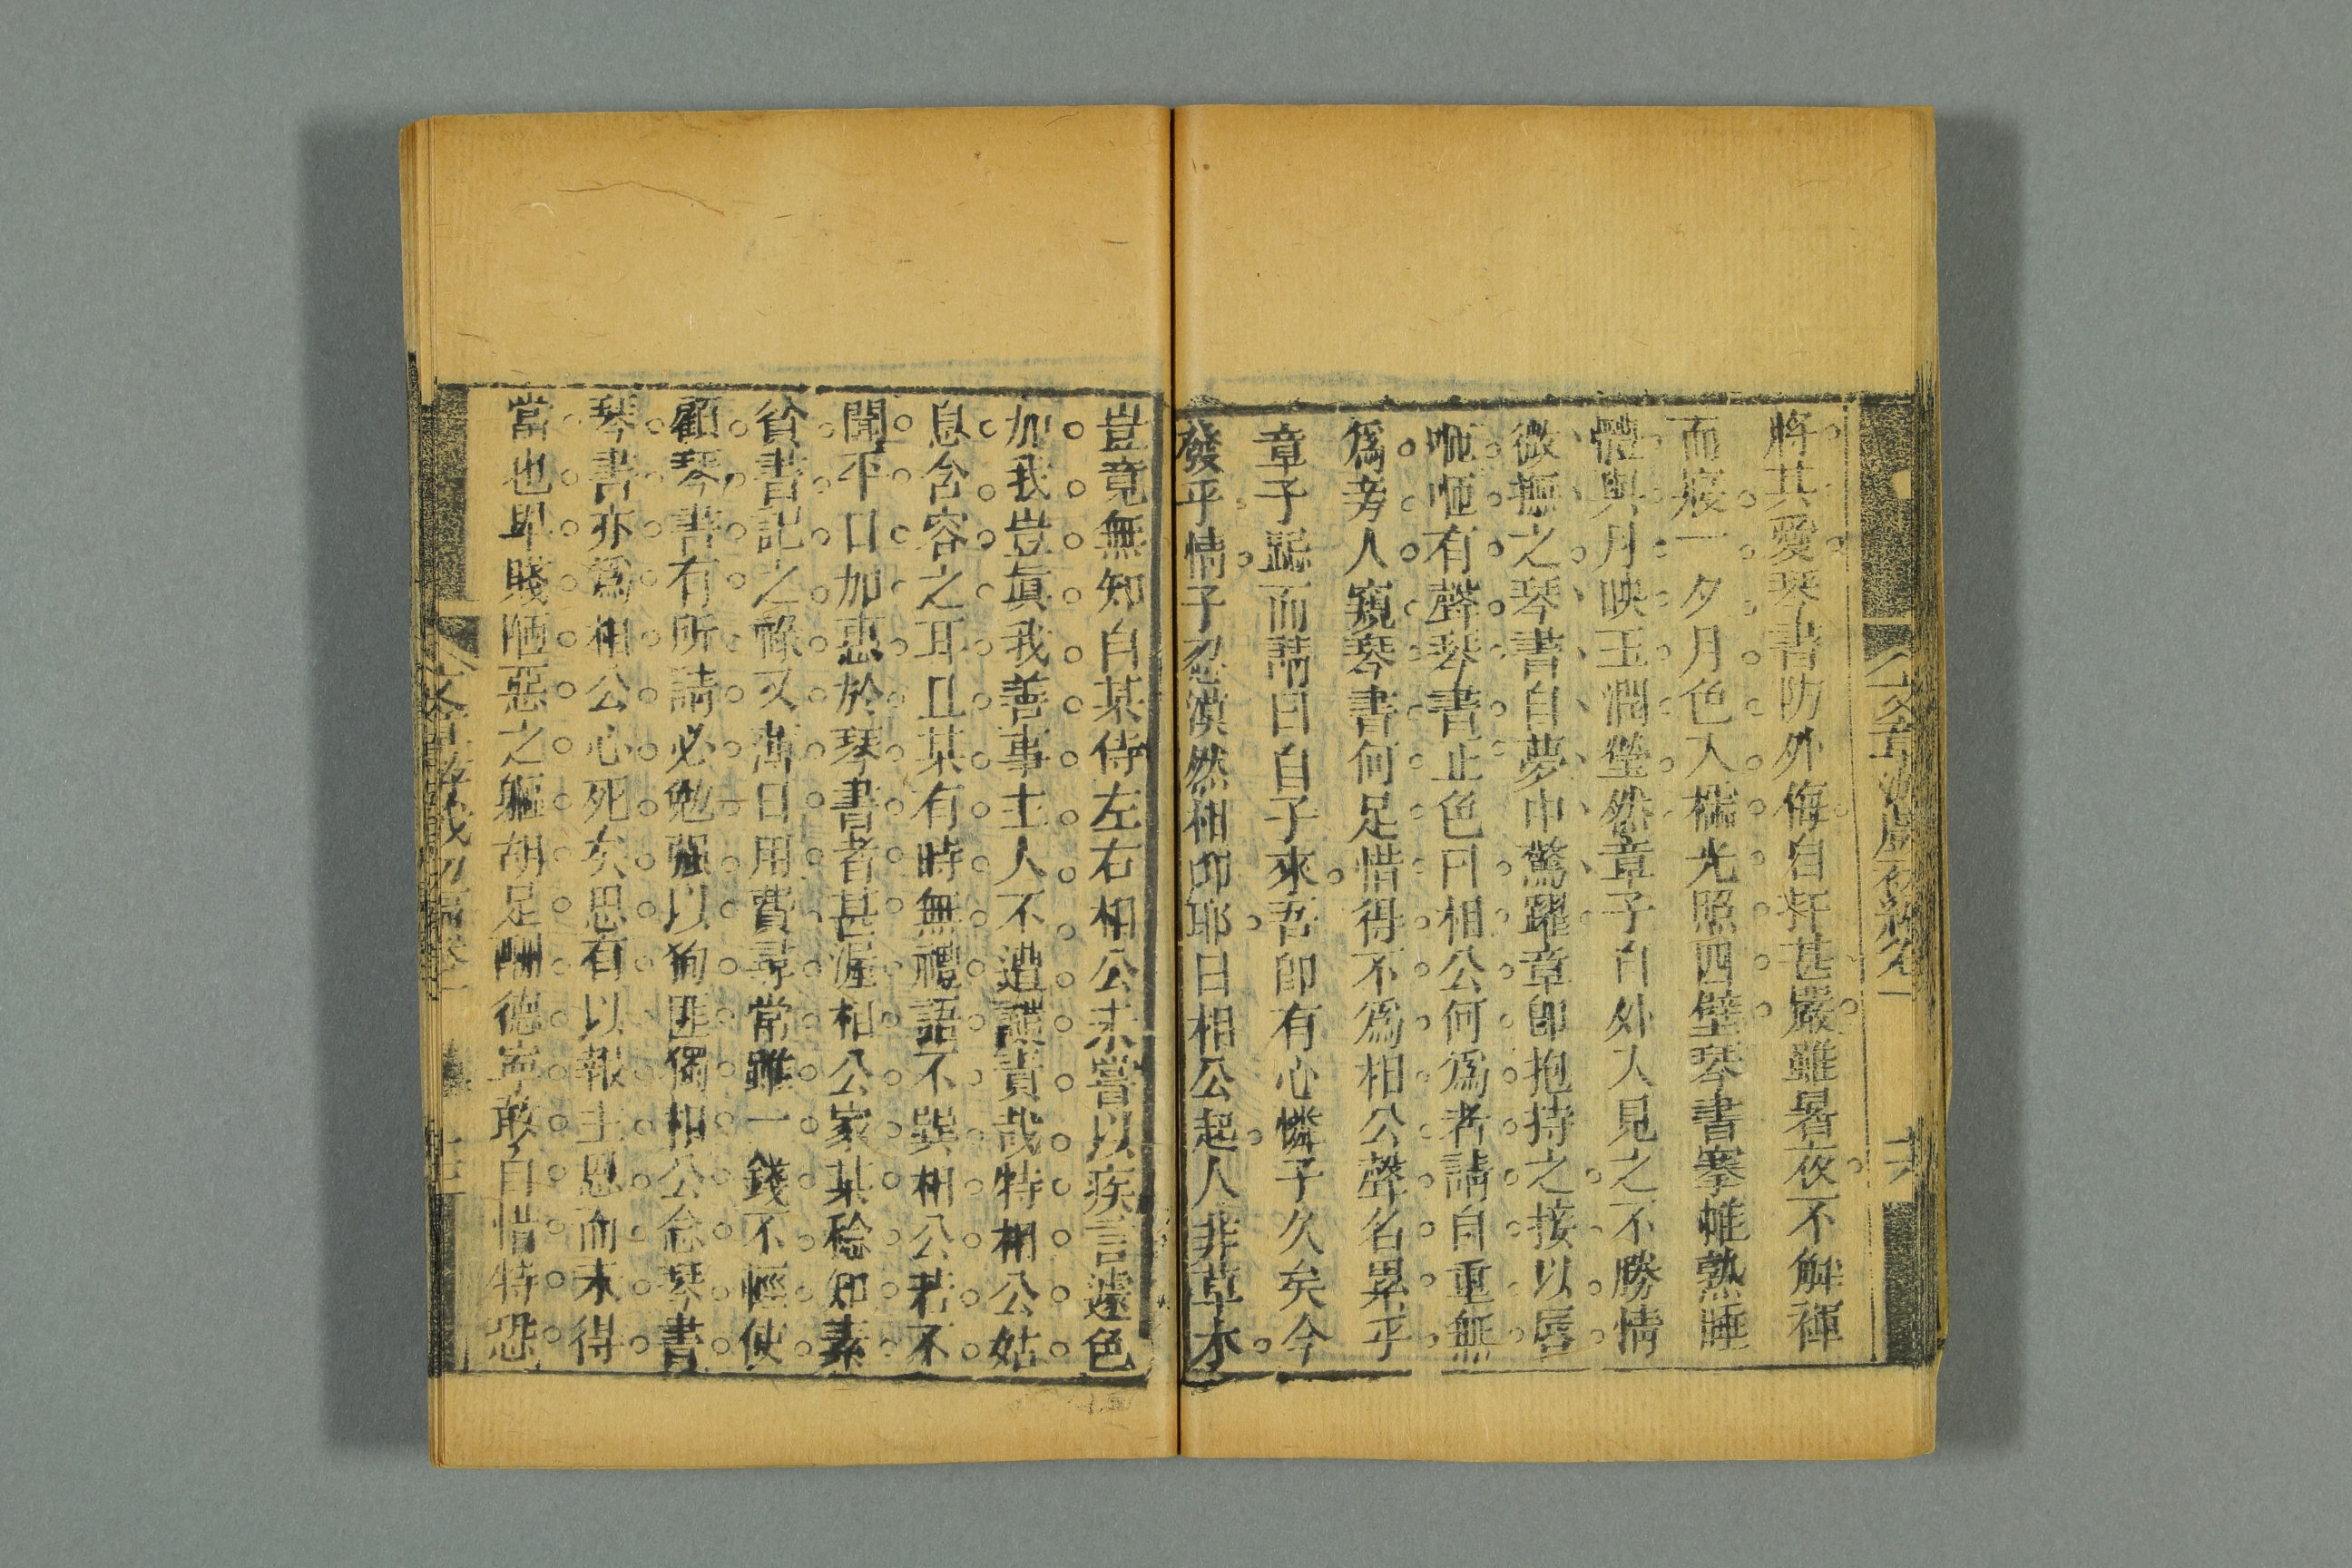 將其愛琴書防外侮自扞甚嚴雖暑夜不解褌
而寢一夕月色入櫺光照四壁琴書搴帷熟睡
體與月映玉潤瑩然章子自外入見之不勝情
微撫之琴書自夢中驚躍章卽抱持之接以唇
咂咂有聲琴書正色曰相公何爲者請自重無
爲旁人窺琴書何足惜得不爲相公聲名累乎
章子跽而請曰自子來吾卽有心憐子久矣今
發乎情子忍漠然相仰耶曰相公起人非草木
豈竟無知自某侍左右相公未嘗以疾言遽色
加我豈眞我善事主人不遭譴責哉特相公姑
息含容之耳且某有時無禮語不與相公若不
聞平日加惠於琴書者甚渥相公家某稔知素
貧書記之祿又薄日用費尋常雖一錢不輕使
顧琴書有所請必勉强以狥匪獨相公念琴書
琴書亦爲相公心死矣思有以報主恩而未得
當也卑賤陋惡之軀胡足酬德寧敢自惜特恐